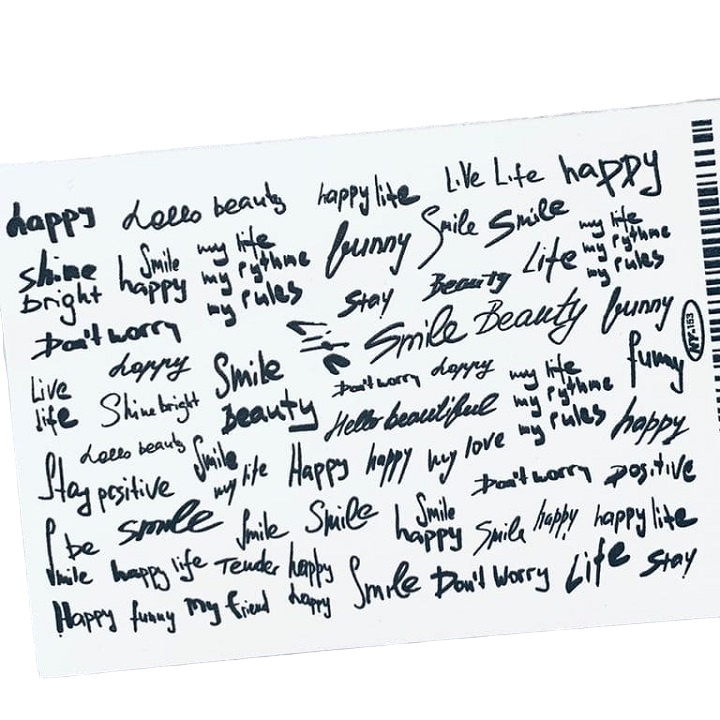 happy Hello beauty happy life Live Life happy
shine Smile my life funny Smile Smile my life
bright happy my rythme Stay Beauty Life my rythme
my rules my rules
Don't worry Smile Beauty funny
happy Smile Don't worry happy my life funny
Live Shine bright Beauty Hello beautiful my rythme happy
life my rules
Hello beauty Smile
Stay positive my life Happy happy my love Don't worry positive
be smile Smile Smile Smile Smile happy happy life
smile happy life Tender happy happy Life Stay
Happy funny My friend happy Smile Don't Worry
NY-153